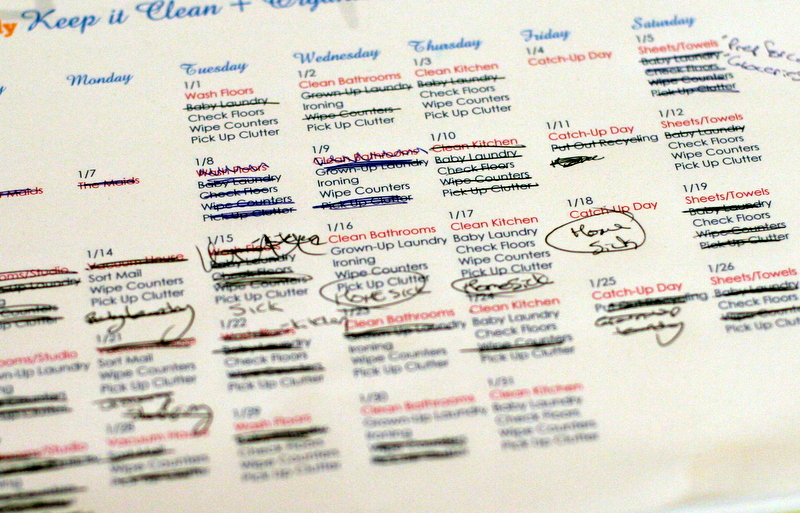 Keep it Clean +
Monday
Tuesday
Wednesday
Thursday
Friday
Saturday
1/1
Wash Floors
Baby Laundry
Check Floors
Wipe Counters
Pick Up Clutter
1/2
Clean Bathrooms
Grown-Up Laundry
Ironing
Wipe Counters
Pick Up Clutter
1/3
Clean Kitchen
Baby Laundry
Check Floors
Wipe Counters
Pick Up Clutter
1/4
Catch-Up Day
1/5
Sheets/Towels
Baby Laundry
Check Floors
Wipe Counters
Pick Up Clutter
Maids
1/7
The Maids
1/8
Wash Floors
Baby Laundry
Check Floors
Wipe Counters
Pick Up Clutter
1/9
Clean Bathrooms
Grown-Up Laundry
Ironing
Wipe Counters
Pick Up Clutter
1/10
Clean Kitchen
Baby Laundry
Check Floors
Wipe Counters
Pick Up Clutter
1/11
Catch-Up Day
Put Out Recycling
1/12
Sheets/Towels
Baby Laundry
Check Floors
Wipe Counters
Pick Up Clutter
1/14
Vacuum House
Sort Mail
Wipe Counters
Pick Up Clutter
Baby Laundry
1/15
Wash Floors
Check Floors
Wipe Counters
Pick Up Clutter
Sick
1/16
Clean Bathrooms
Grown-Up Laundry
Ironing
Wipe Counters
Pick Up Clutter
Home Sick
1/17
Clean Kitchen
Baby Laundry
Check Floors
Wipe Counters
Pick Up Clutter
Home Sick
1/18
Catch-Up Day
Home
Sick
1/19
Sheets/Towels
Baby Laundry
Check Floors
Wipe Counters
Pick Up Clutter
1/21
Sort Mail
Wipe Counters
Pick Up Clutter
1/22
Check Floors
Pick Up Clutter
1/23
Clean Bathrooms
Ironing
Wipe Counters
Pick Up Clutter
1/24
Clean Kitchen
Baby Laundry
Check Floors
Wipe Counters
Pick Up Clutter
1/25
Catch-Up Day
Put Out Recycling
1/26
Sheets/Towels
Baby Laundry
Check Floors
Wipe Counters
Pick Up Clutter
1/28
Vacuum House
Wipe Counters
Pick Up Clutter
1/29
Wash Floors
Check Floors
Wipe Counters
Pick Up Clutter
1/30
Clean Bathrooms
Grown-Up Laundry
Ironing
1/31
Clean Kitchen
Baby Laundry
Check Floors
Wipe Counters
Pick Up Clutter